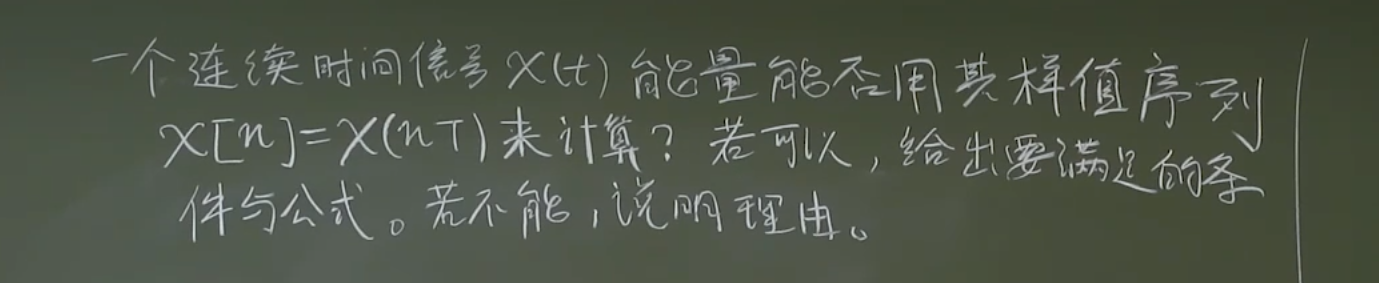 一个连续时间信号 X(t) 能量能否用其样值序列
X[n]=X(nT)来计算？若可以，给出要满足的条
件与公式。若不能，说明理由。